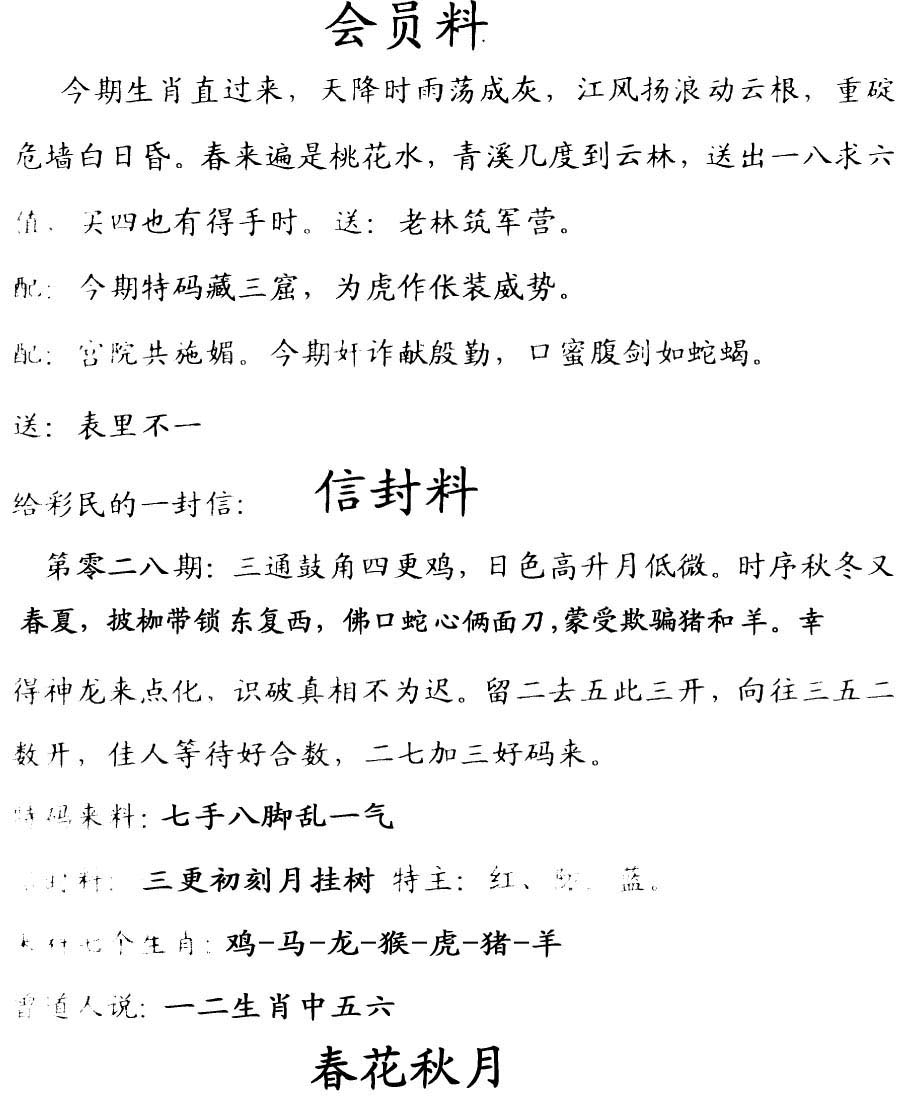 会员料
今期生肖直过来，天降时雨荡成灰，江风扬浪动云根，重碇
危墙白日昏。春来遍是桃花水，青溪几度到云林，送出一八求六
值、买四也有得手时。送：老林筑军营。
配：今期特码藏三窟，为虎作伥装威势。
配：宫院共施媚。今期奸诈献殷勤，口蜜腹剑如蛇蝎。
送：表里不一
信封料
给彩民的一封信：
第零二八期：三通鼓角四更鸡，日色高升月低微。时序秋冬又
春夏，披枷带锁东复西，佛口蛇心俩面刀,蒙受欺骗猪和羊。幸
得神龙来点化，识破真相不为迟。留二去五此三开，向往三五二
数开，佳人等待好合数，二七加三好码来。
特码来料：七手八脚乱一气
料：三更初刻月挂树 特主：红、蓝。
个生肖：鸡-马-龙-猴-虎-猪-羊
曾道人说：一二生肖中五六
春花秋月